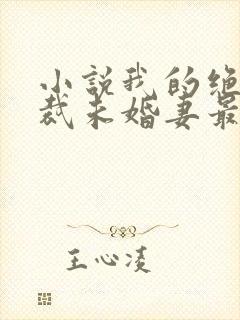 小説我的绝
裁未婚妻最
王心凌